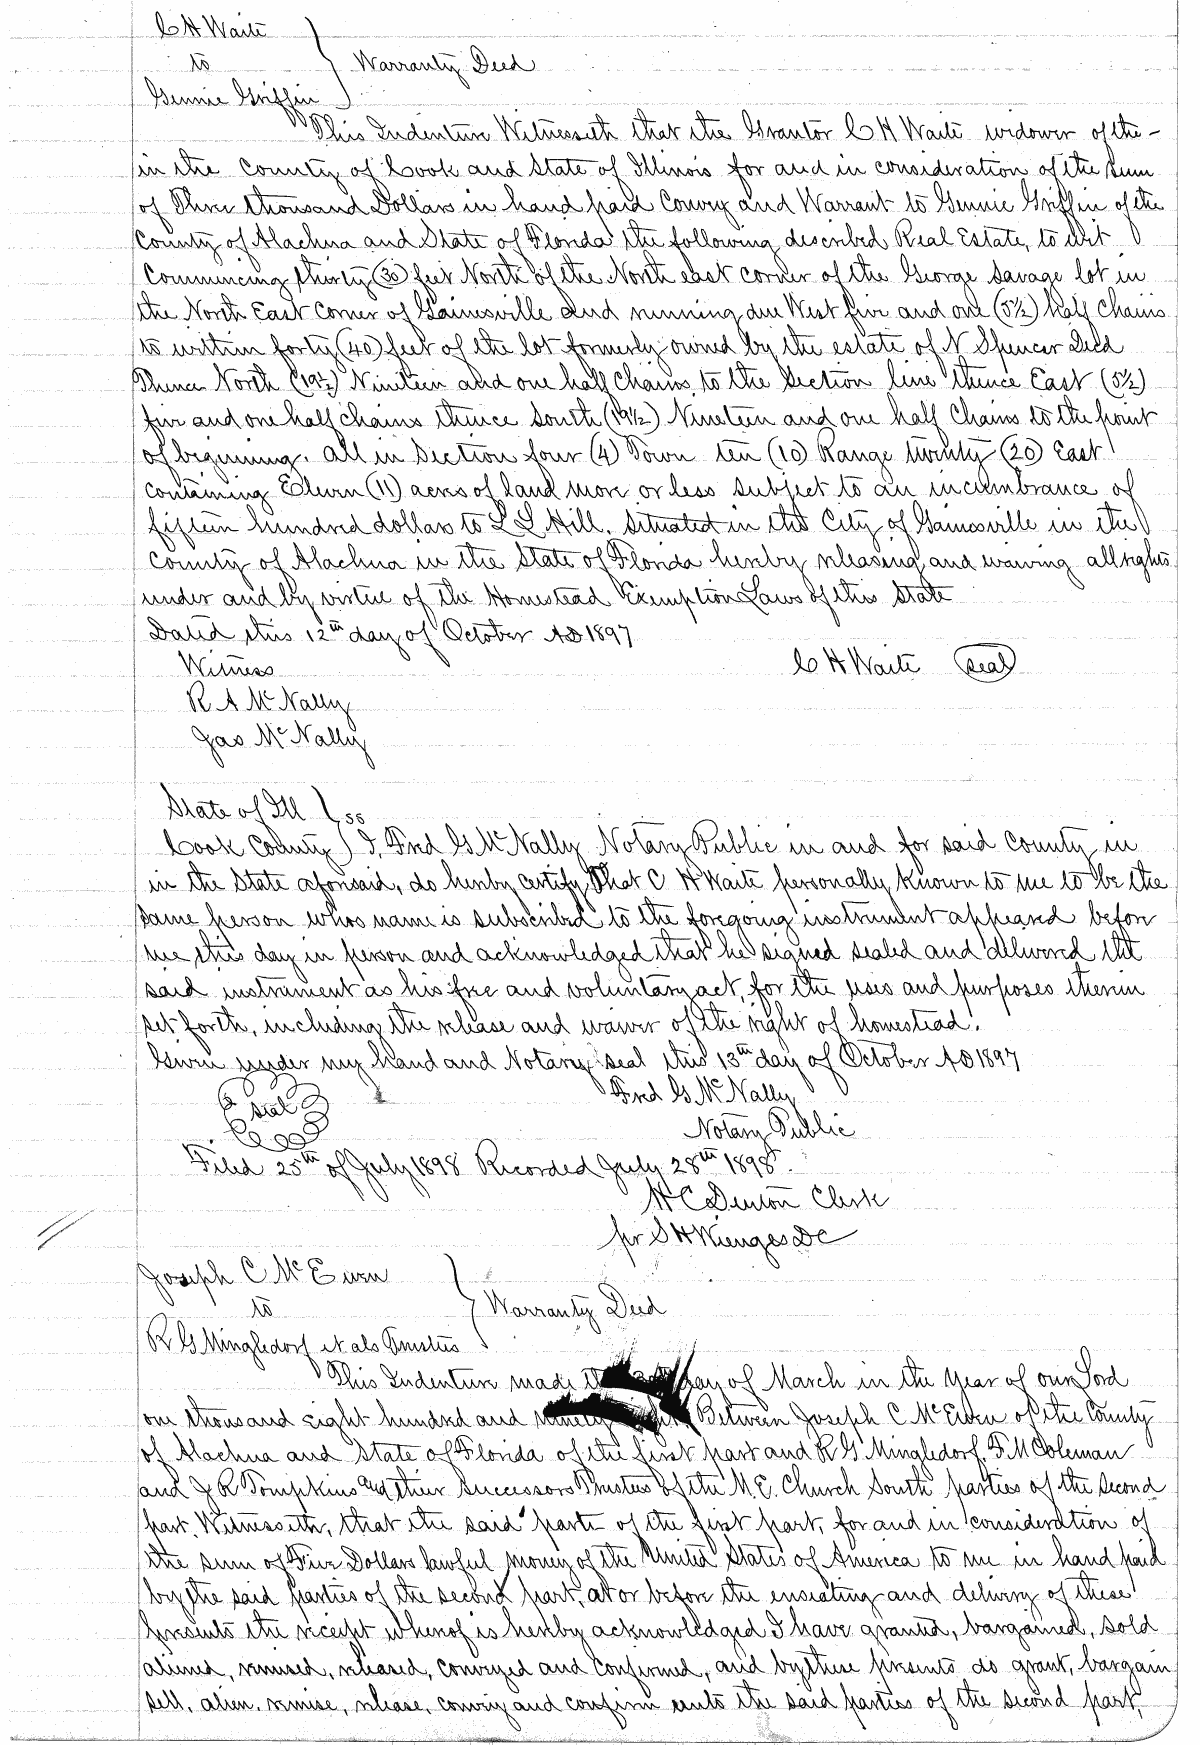 C H Waite
to } Warranty Deed
Gennie Griffin
This Indenture Witnesseth that the Grantor C H Waite widower of the –
in the County of Cook and State of Illinois for and in consideration of the sum
of Three thousand Dollars in hand paid Convey and Warrant to Gennie Griffin of the
County of Alachua and State of Florida the following described Real Estate, to wit
Commencing thirty (30) feet North of the North east corner of the George Savage lot in
the North East Corner of Gainesville and running due West five and one (5½) half Chains
to within forty (40) feet of the lot formerly owned by the estate of N Spencer Decd
Thence North (19½) Nineteen and one half Chains, to the Section line thence East (5½)
five and one half chains thence South (19½) Nineteen and one half Chains to the point
of beginning. All in Section four (4) Town ten (10) Range twenty (20) East
Containing Eleven (11) acres of land more or less subject to an incumbrance of
fifteen hundred dollars to L L Hill. Situated in the City of Gainesville in the
County of Alachua in the State of Florida hereby releasing and waiving all rights
under and by virtue of the Homestead Exemption Laws of this State
Dated this 12th day of October AD 1897
Witness C H Waite (seal)
R A McNally
Jas McNally
State of Ill } ss
Cook County ) I, Fred G McNally Notary Public in and for said County in
in the State aforesaid, do hereby certify that C H Waite personally known to me to be the
same person whos name is subscribed to the foregoing instrument appeared before
me this day in person and acknowledged that he signed sealed and delivered the
said instrument as his free and voluntary act, for the uses and purposes therein
set forth, including the release and waiver of the right of homestead.
Given under my hand and Notary seal this 13th day of October AD 1897
Fred G McNally
seal
Notary Public
Filed 25th of July 1898 Recorded July 28th 1898.
H C Denton Clerk
per S H Wienges DC
Joseph C McEwen
to } Warranty Deed
R G Mingledorf et als Trustees
This Indenture made day of March in the Year of our Lord
one thousand eight hundred and Between Joseph C McEwen of the County
of Alachua and State of Florida of the first part and R G Mingledorf, F M Coleman
and J R Tompkins and their Successors Trustees of the M. E. Church South parties of the second
part, Witnesseth, that the said party of the first part, for and in consideration of
the sum of Five Dollars lawful money of the United States of America to me in hand paid
by the said parties of the second part, at or before the ensealing and delivery of these
presents the receipt whereof is hereby acknowledged I have granted, bargained, sold
aliened, remised, released, conveyed and confirmed, and by these presents do grant, bargain
sell, alien, remise, release, convey and confirm unto the said parties of the second part,